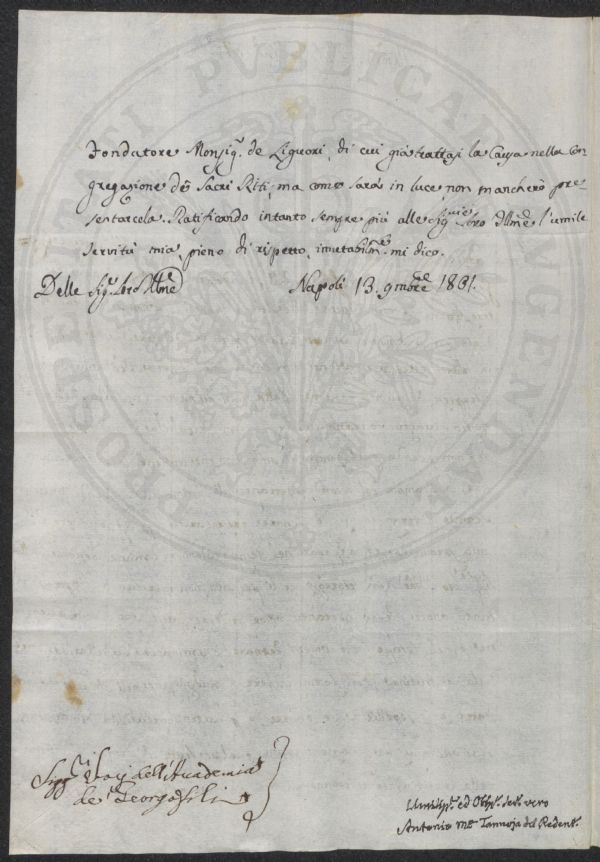 Fondatore Monsig.r de Liguori, di cui già trattasi la Causa nella Con
gregazione de' Sacri Riti; ma come sarà in luce non mancherò pre
sentarcela. Ratificando intanto sempre più alle Sig.rie Loro Illme l'umile
servitù mia, pieno di rispetto, immutabilm.e mi dico.
Delle Sig.e Loro Illme
Napoli 13. 9mbre 1801.
Sigg.ri Socj dell'Accademia
de' Georgofili
Umiliss.o ed Obb.mo Ser.e vero
Antonio M.a Tannoja del Redent.e
PROSPERITATI PUBLICAE AUGENDAE